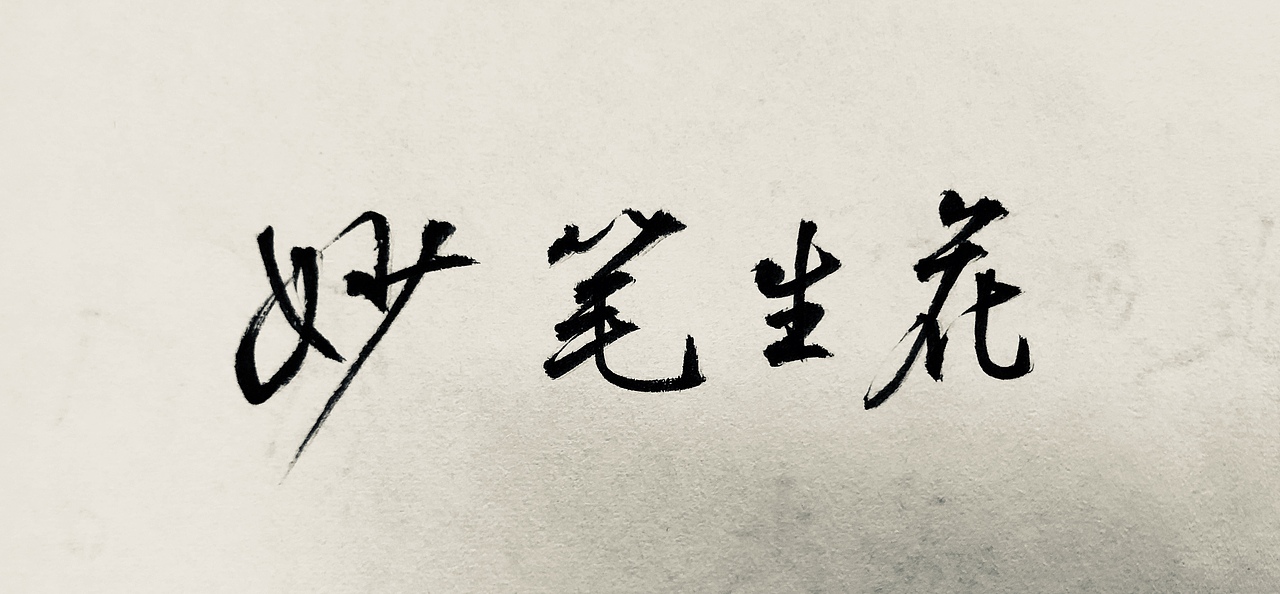 妙笔生花